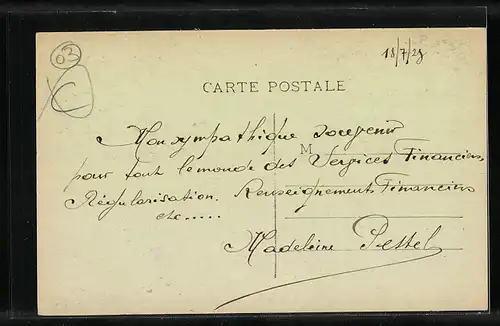 03
18/7/25
CARTE POSTALE
Mon sympathique souvenir
M
pour tout le monde des Services Financiers,
Régularisation. Renseignements Financiers
etc.....
Madeleine Pestel